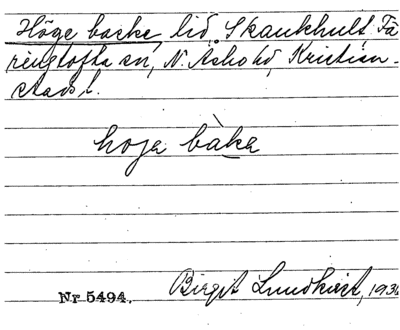 Höge backe, lid, Skankhult Fä
ringtofta sn, N. Åsbo hd, Kristian-
stads l.
hoja bàka
Birgit Lundkvist, 193
Nr 5494.